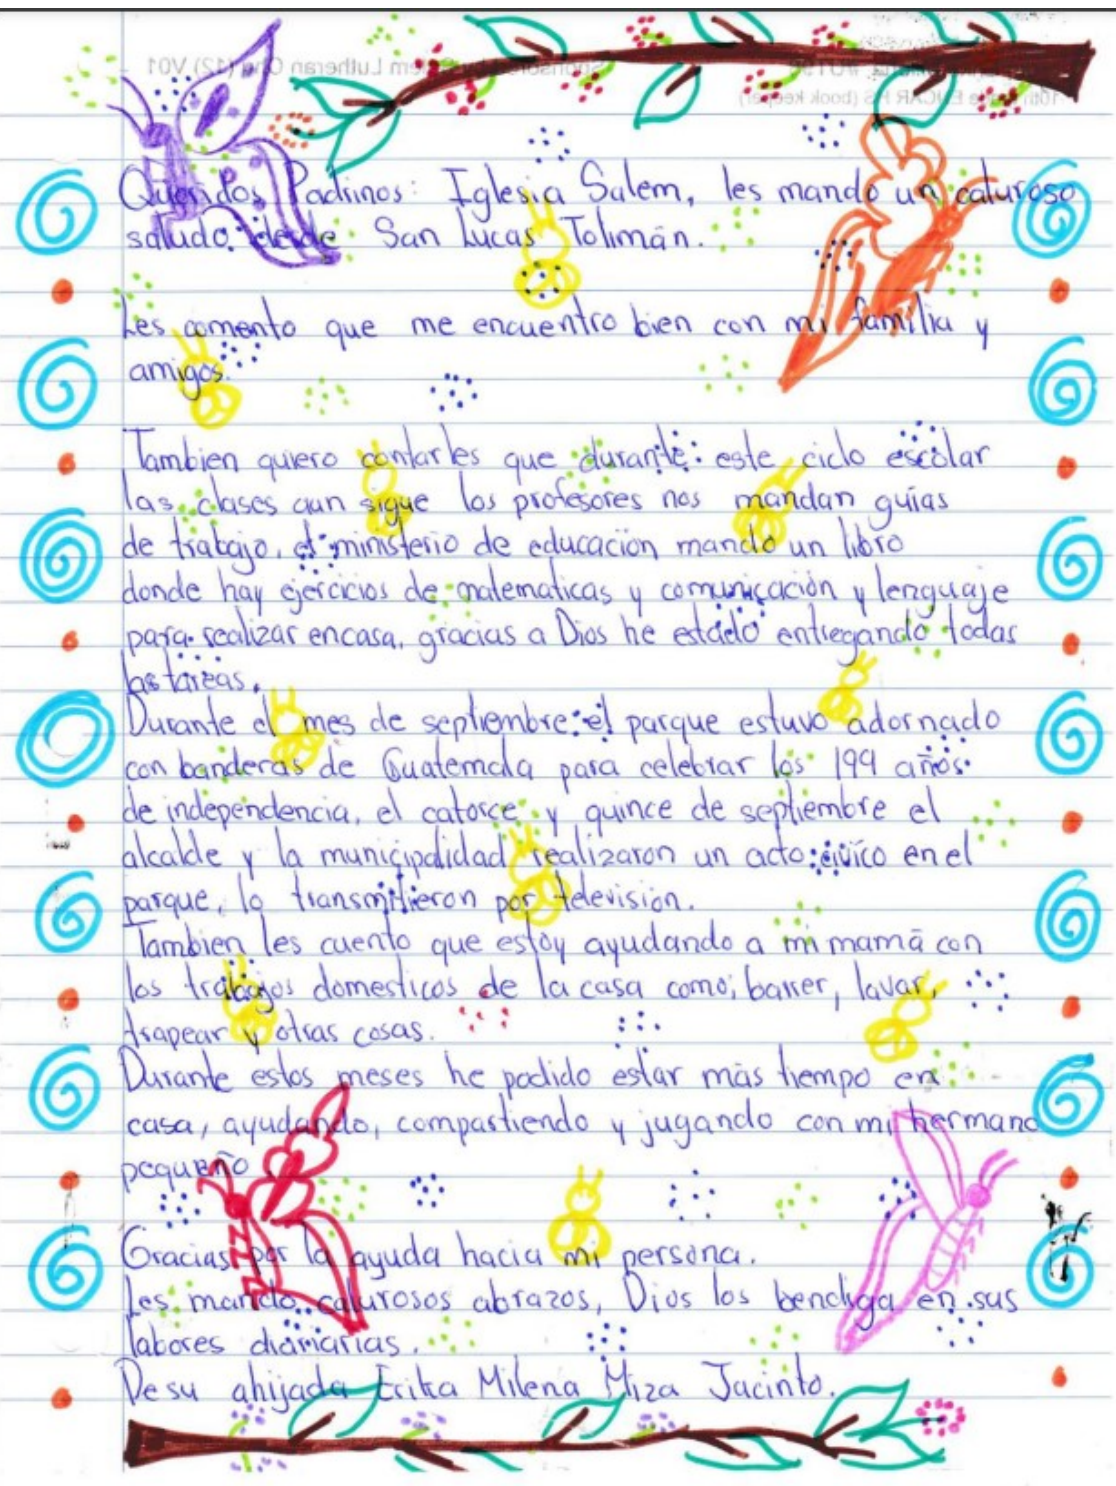 Queridos Padrinos: Iglesia Salem, les mando un caluroso
saludo desde San Lucas Tolimán.
Les comento que me encuentro bien con mi familia y
amigos.
Tambien quiero contarles que durante este ciclo escolar
las clases aun sigue los profesores nos mandan guías
de trabajo, el ministerio de educación mando un libro
donde hay ejercicios de matematicas y comunicación y lenguaje
para realizar encasa, gracias a Dios he estado entregando todas
las tareas.
Durante el mes de septiembre el parque estuvo adornado
con banderas de Guatemala para celebrar los 199 años
de independencia, el catorce y quince de septiembre el
alcalde y la municipalidad realizaron un acto civico en el
parque, lo transmitieron por televisión.
Tambien les cuento que estoy ayudando a mi mamá con
los trabajos domesticos de la casa como; barrer, lavar,
trapear y otras cosas.
Durante estos meses he podido estar más tiempo en
casa, ayudando, compartiendo y jugando con mi hermano
pequeño
Gracias por la ayuda hacia mi persona.
Les mando calurosos abrazos, Dios los bendiga en sus
labores diariarias.
De su ahijada Erika Milena Miza Jacinto.